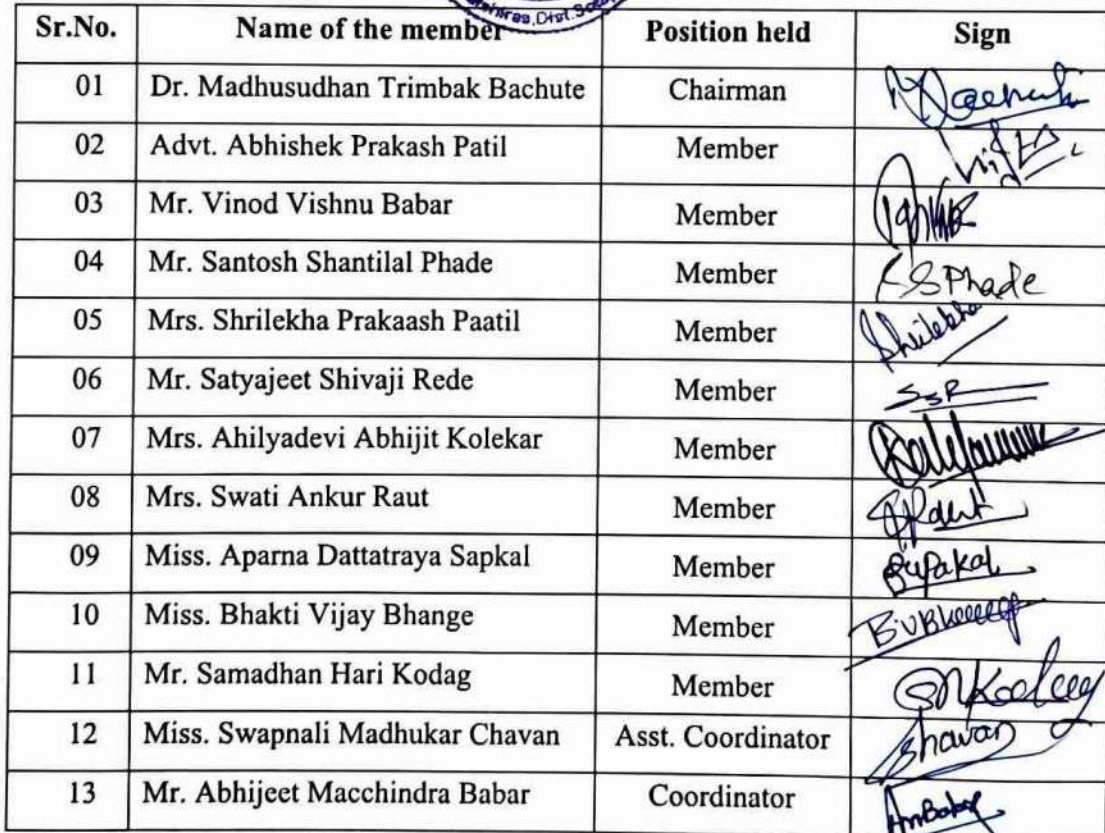 Dist. So
Sr.No. Name of the member Position held Sign
01 Dr. Madhusudhan Trimbak Bachute Chairman
02 Advt. Abhishek Prakash Patil Member
03 Mr. Vinod Vishnu Babar Member
04 Mr. Santosh Shantilal Phade Member SSPhade
05 Mrs. Shrilekha Prakaash Paatil Member Shrilekha
06 Mr. Satyajeet Shivaji Rede Member SSR
07 Mrs. Ahilyadevi Abhijit Kolekar Member
08 Mrs. Swati Ankur Raut Member
09 Miss. Aparna Dattatraya Sapkal Member
10 Miss. Bhakti Vijay Bhange Member
11 Mr. Samadhan Hari Kodag Member
12 Miss. Swapnali Madhukar Chavan Asst. Coordinator
13 Mr. Abhijeet Macchindra Babar Coordinator